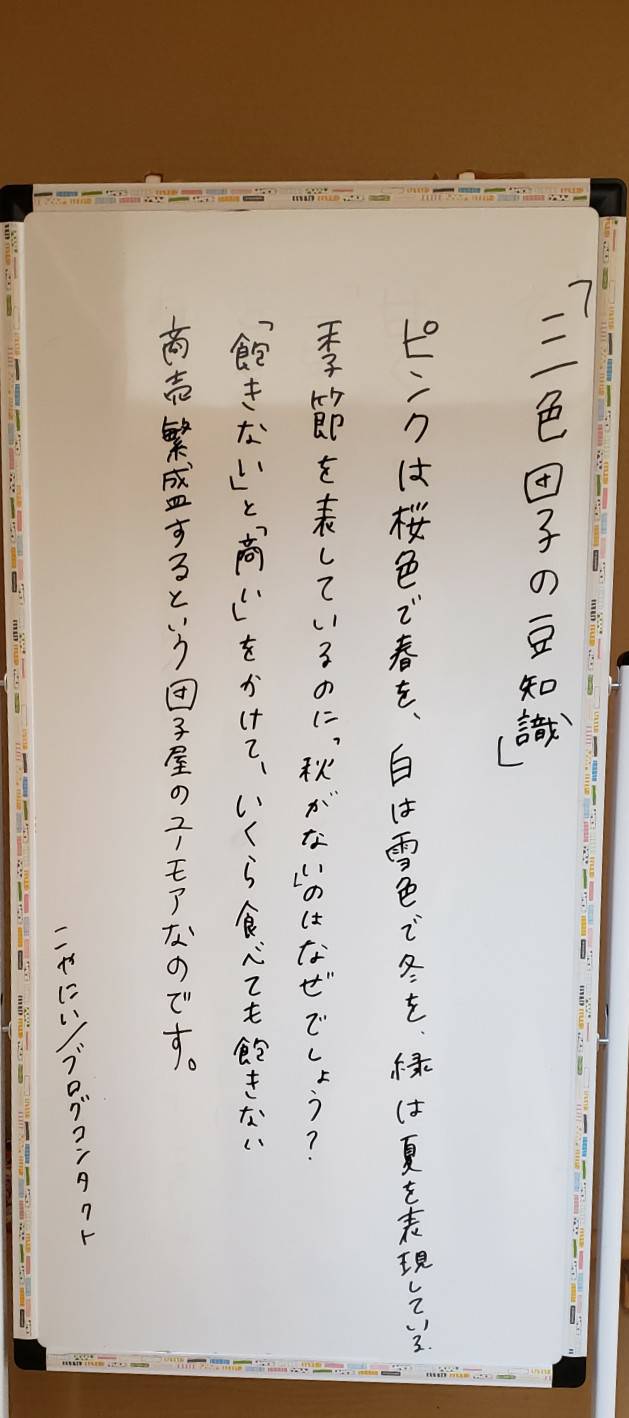 「三色団子の豆知識」
ピンクは桜色で春を、白は雪色で冬を、緑は夏を表現している.
季節を表しているのに「秋がない」のはなぜでしょう?
「飽きない」と「商い」をかけて、いくら食べても飽きない
商売繁盛するという団子屋のユーモアなのです。
こやにい/ブログコンタクト